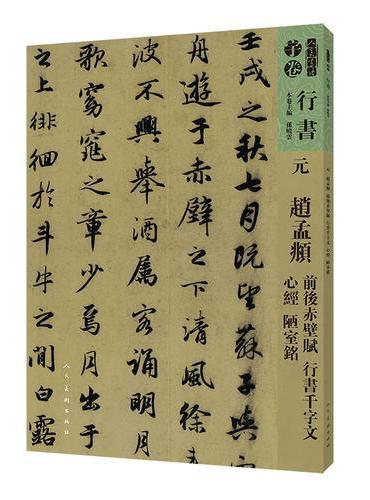 人美書譜
宇卷
行書
本卷主編 孫曉雲
元
趙孟頫
前後赤壁賦 行書千字文
心經 陋室銘
壬戌之秋七月既望蘇子與
舟遊于赤壁之下清風徐
波不興舉酒属客誦明月
歌窈窕之章少焉月出于
之上徘徊於斗牛之間白露
人民美術出版社